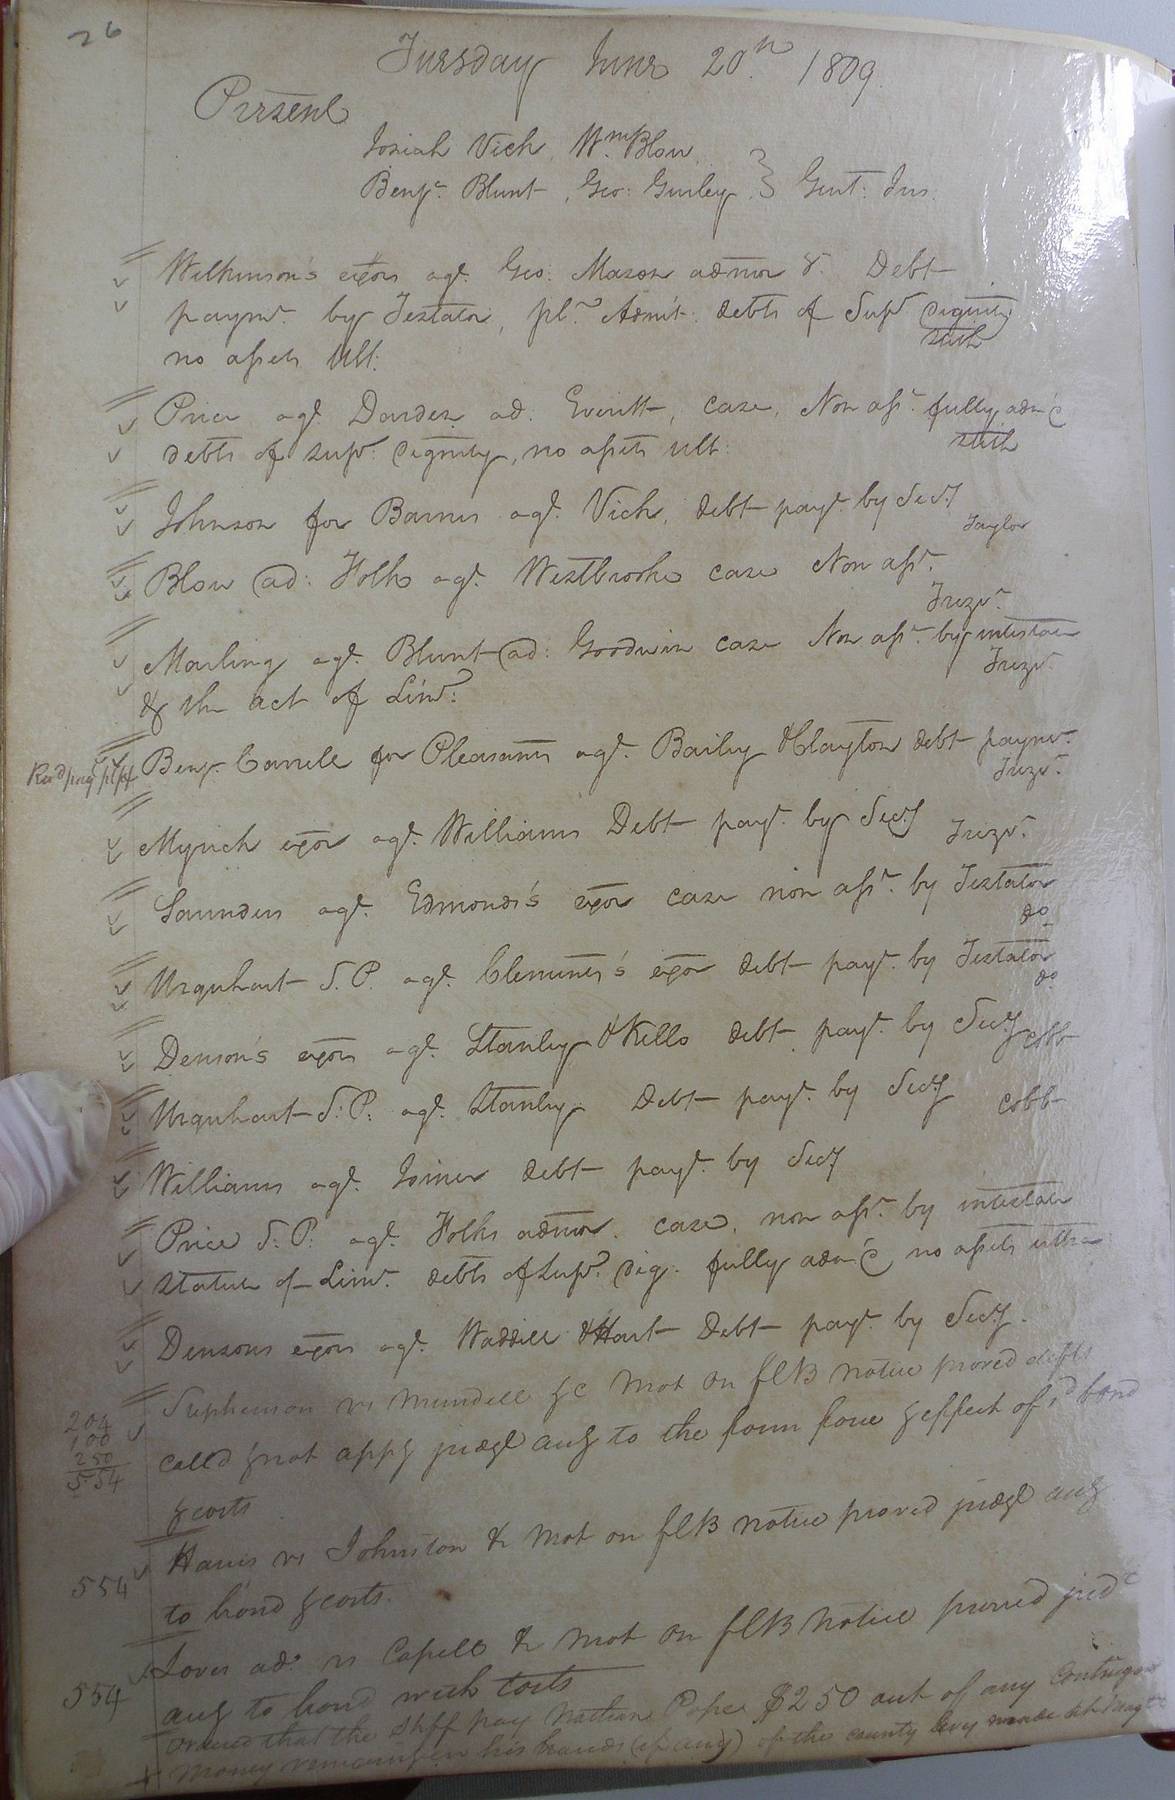 26
Tuesday June 20th 1809
Present
Josiah Vick, Wm. Blow,
Benja. Blunt, Geo: Gurley } Gent: Jus.
Wilkinson's exors agt. Geo: Mason admor &. Debt
paymt. by Testator, pl. Admt. debts of Supr dignity
no assets Ult:
Price agt. Darden ad. Everitt, case, Non asst. fully adm'd
debts of supr. dignity, no assets ult:
Johnson for Barnes agt. Vick, debt payt. by Secy
Taylor
Blow ad: Folk agt. Westbrooke case Non asst.
Trezvt.
Marling agt. Blunt ad: Goodwin case Non asst. by intestate
Trezvt.
& the act of Limt:
Benj. Carrele for Pleasants agt. Bailey & Clayton debt paymt.
Trezvt.
Myrick exor agt. Williams Debt payt. by Secy
Trezvt.
Saunders agt. Edmonds's exor case non asst. by Testator
do
Urquhart S. P. agt. Clements's exor debt payt. by Testator
do
Denson's exors agt. Stanley & Kello debt payt. by Secy
Cobb
Urquhart S: P: agt. Stanley Debt payt. by Secy
Cobb
Williams agt. Joiner debt payt. by Secy
Price S: P: agt. Folks admor. case, non asst. by intestate
statute of Limt. debts of Supr. dig: fully adm'd no assets ultra
Densons exors agt. Waddill & Hart Debt payt. by Secy.
Stephenson vs Mundell &c Mot on FCB notice proved defts
204
100
250
554
calld & not appg judgt awg to the form force & effect of sd bond
& costs
Harris vs Johnston & Mot on FCB notice proved judgt awg
554
to bond & costs.
ador vs Capell & Mot on FCB Notice proved jud
554
awg to bond with Costs
Ordered that the Shff pay Nathan Pope $250 out of any Contingent
Money remaining in his hands (if any) of the county levy made